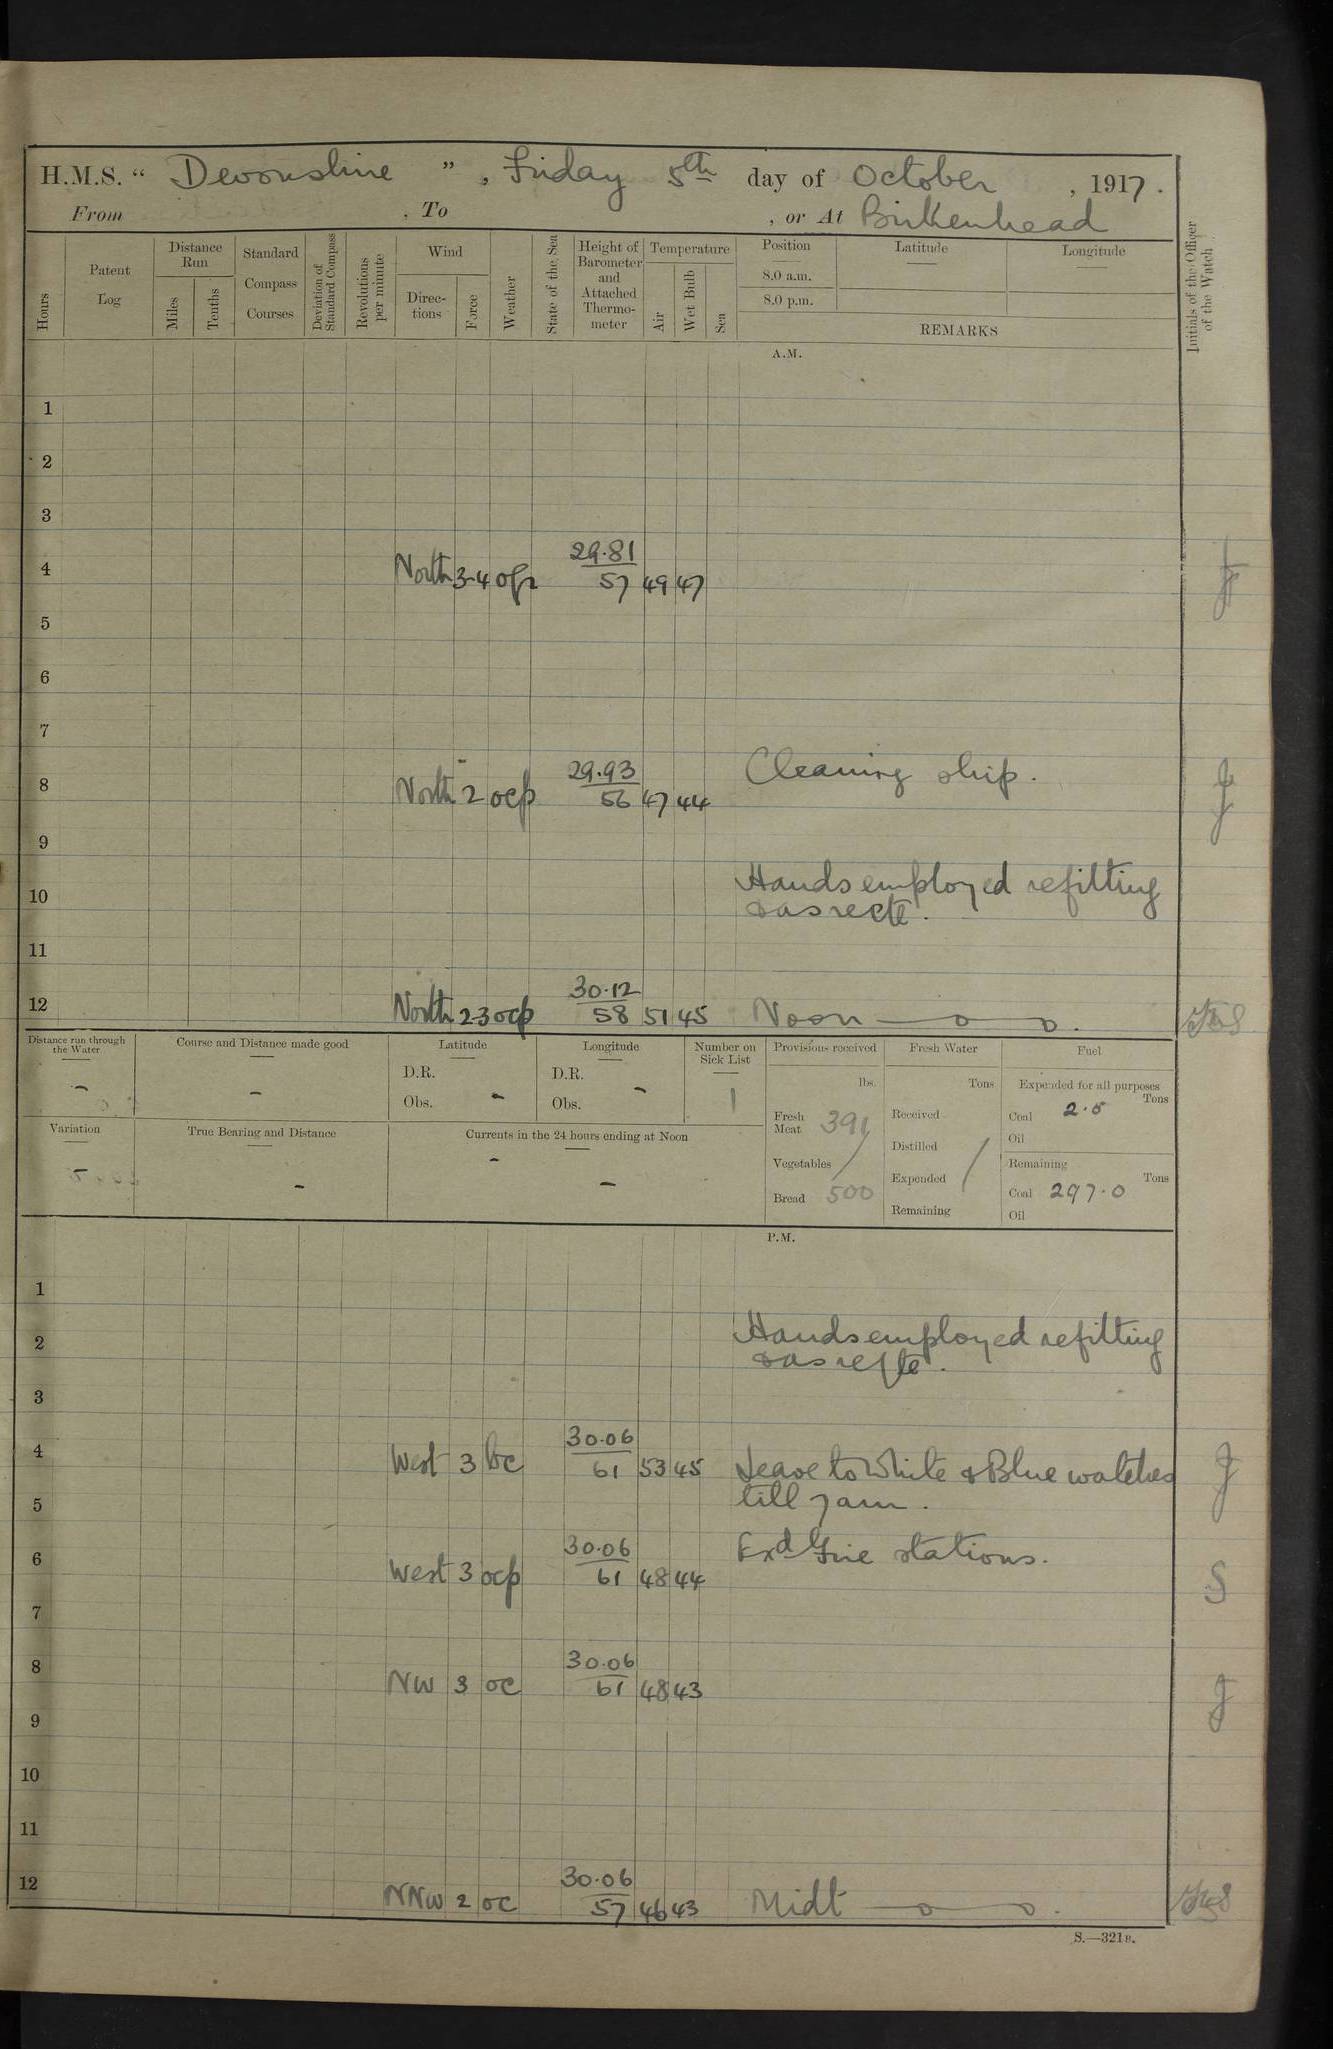 H.M.S. “ Devonshire ”, Friday 5th day of October , 1917.
From , To , or At Birkenhead
Hours
Patent Log
Distance Run
Miles
Tenths
Standard Compass Courses
Deviation of Standard Compass
Revolutions per minute
Wind
Directions
Force
Weather
State of the Sea
Height of Barometer and Attached Thermometer
Temperature
Air
Wet Bulb
Sea
Position
8.0 a.m.
8.0 p.m.
Latitude
Longitude
REMARKS
Initials of the Officer of the Watch
A.M.
1
2
3
4 North 3-4 29.81 57 49 47
5
6
7
8 North 2 ocp 29.93 56 47 44 Cleaning ship.
9
10 Hands employed refitting
& as reqte.
11
12 North 2-3 ocp 30.12 58 51 45 Noon
Distance run through the Water
-
Course and Distance made good
-
Latitude
D.R.
Obs. -
Longitude
D.R.
Obs. -
Number on Sick List
1
Variation
True Bearing and Distance
-
Currents in the 24 hours ending at Noon
- -
Provisions received
lbs.
Fresh Meat 391
Vegetables /
Bread 500
Fresh Water
Tons
Received
Distilled
Expended /
Remaining
Fuel
Expended for all purposes
Tons
Coal 2.5
Oil
Remaining
Tons
Coal 297.0
Oil
P.M.
1
2 Hands employed refitting
& as reqte.
3
4 West 3 bc 30.06 61 53 45 Leave to White & Blue watches
5 till 7am.
6 West 3 ocp 30.06 61 48 44 Exd Fire stations. S
7
8 NW 3 oc 30.06 61 48 43
9
10
11
12 NNW 2 oc 30.06 57 46 43 Midt
S.—321B.